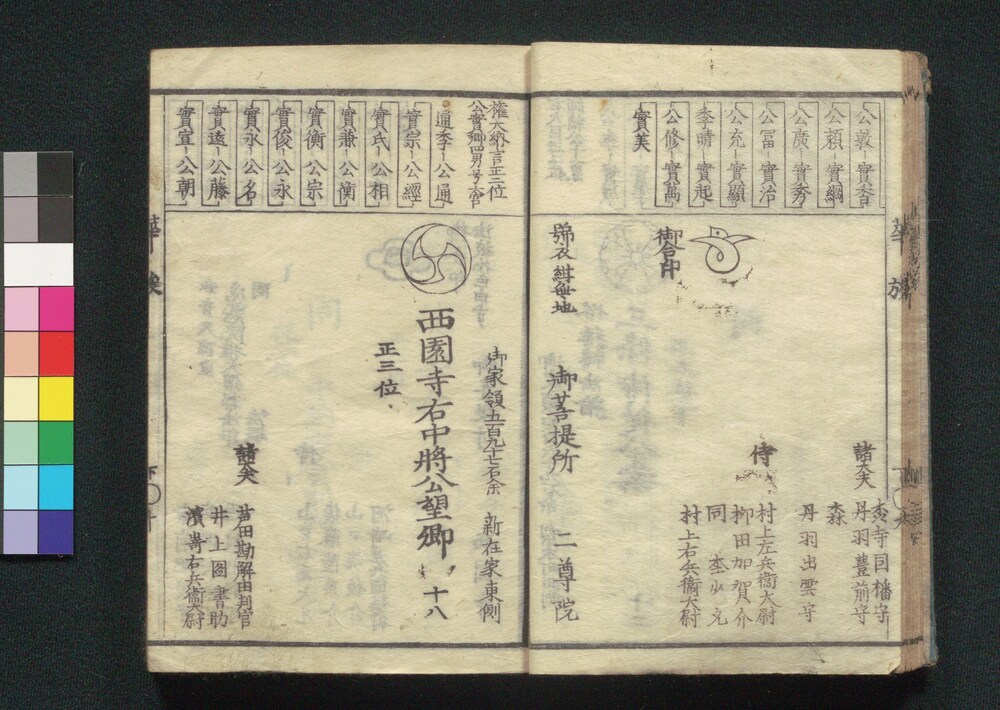 公敦－實香
公頼－實綱
公廣－實秀
公冨－實治
公充－實顯
季晴－實起
公修－實萬
實美
御合印
諸大夫
森寺因幡守
丹羽豊前守
森
丹羽出雲守
侍
村上左兵衛大尉
柳田加賀介
同
村上右兵衛大尉
號衣紺無地
御菩提所
二尊院
華族
權大納言正三位
公實卿四男号大宮
通季－公通
實宗－公經
實氏－公相
實兼－公衡
實衡－公宗
實俊－公永
實永－公名
實遠－公藤
實宣－公朝
御家領五百九十七石余
新在家東側
西園寺右中將公望卿
十八
正三位
諸大夫
芦田勘解由判官
井上図書助
濱嵜右兵衛大尉
華族